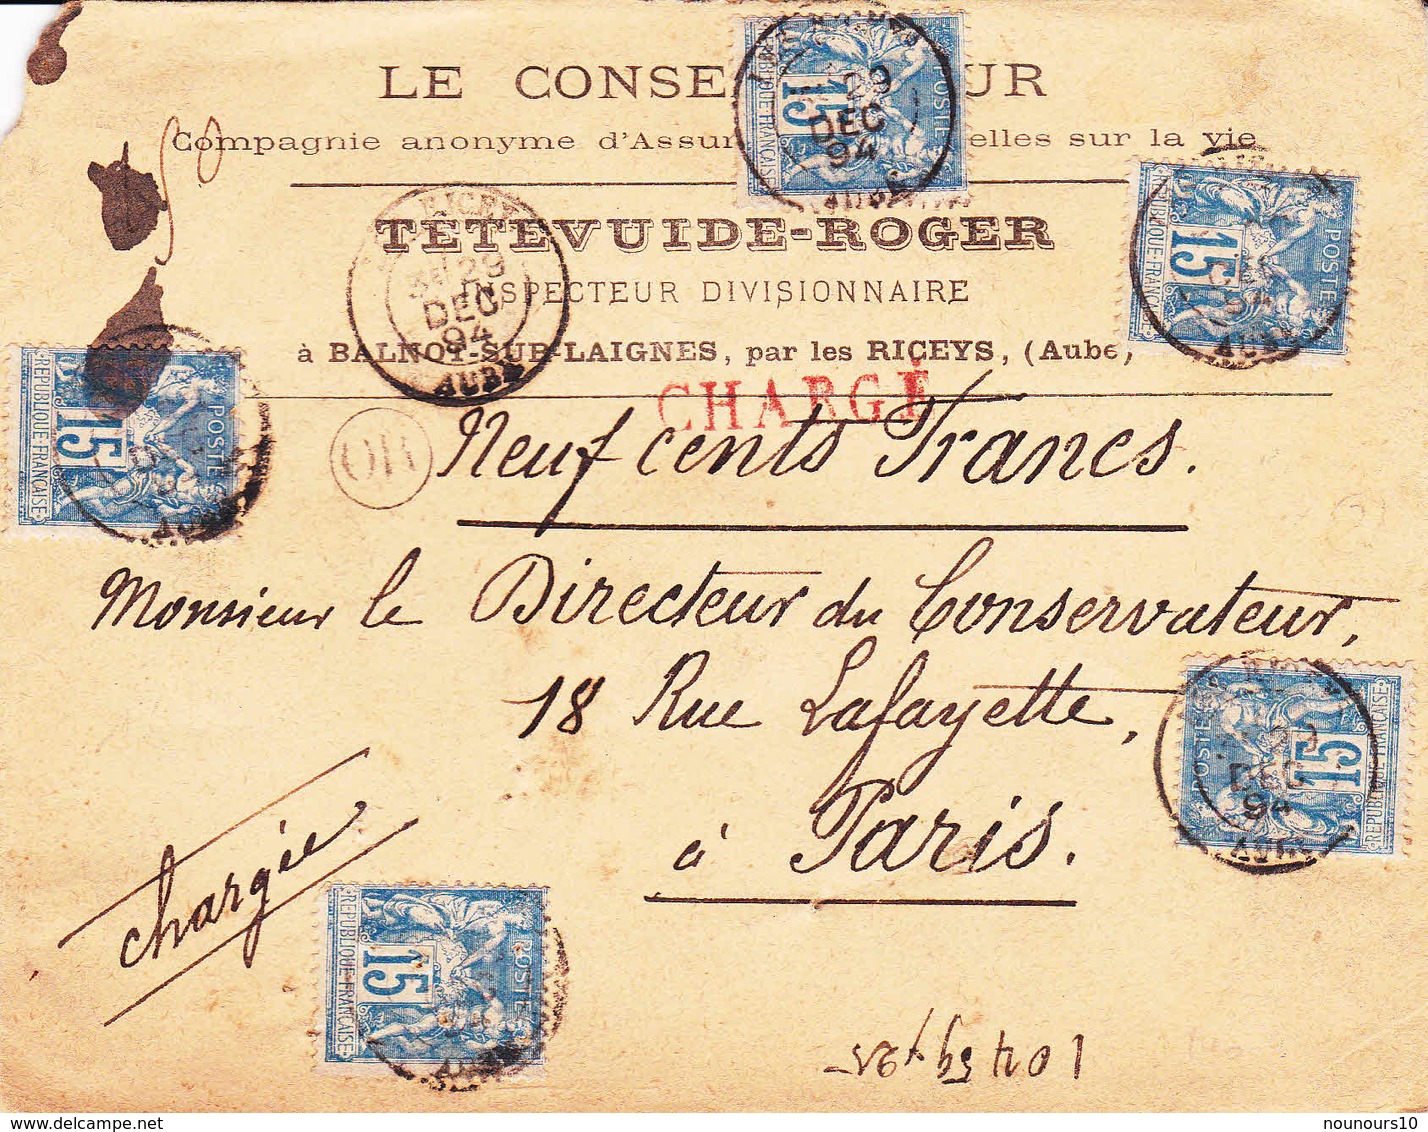 LE CONSE UR
Compagnie anonyme d'Assur elles sur la vie
TETEVUIDE-ROGER
INSPECTEUR DIVISIONNAIRE
à BALNOT-SUR-LAIGNES, par les RICEYS, (Aube)
CHARGÉ
Neuf cents Francs.
Monsieur le Directeur du Conservateur,
18 Rue Lafayette,
à Paris.
chargée
OR
RICEY
29
DEC
94
AUBE
POSTES
15
REPUBLIQUE FRANÇAISE
29
DEC
94
AUBE
POSTES
15
REPUBLIQUE FRANÇAISE
94
AUBE
POSTES
15
REPUBLIQUE FRANÇAISE
AUBE
POSTES
15
REPUBLIQUE FRANÇAISE
DEC
94
AUBE
POSTES
15
REPUBLIQUE FRANÇAISE
delcampe.net
nounours10